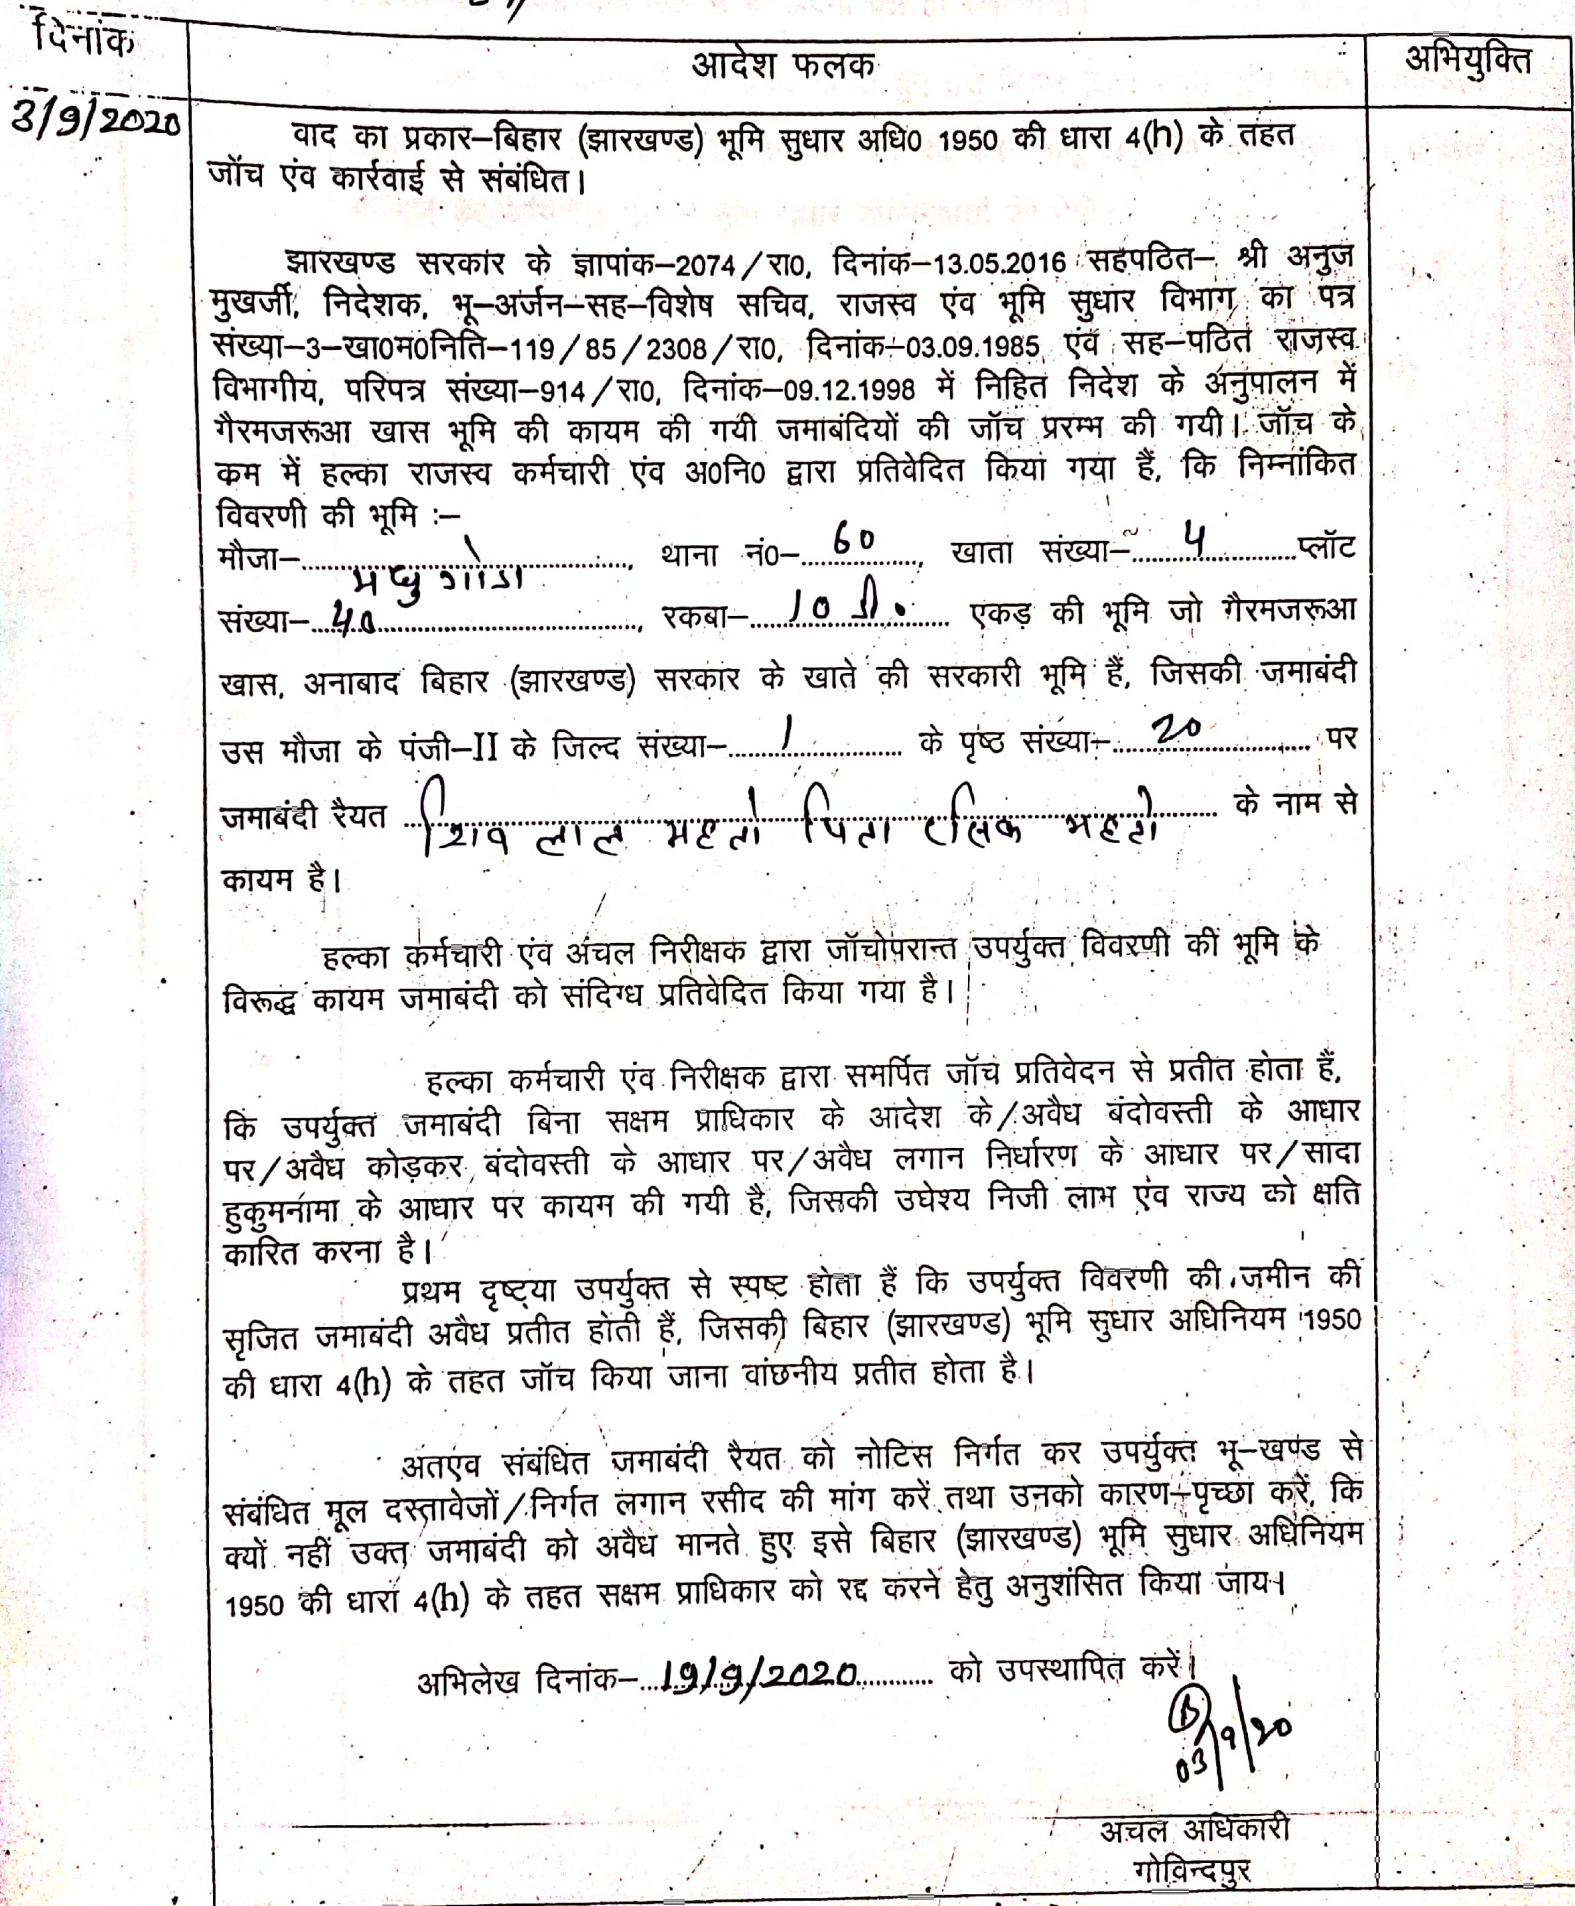 दिनांक
आदेश फलक
अभियुक्ति
3/9/2020
वाद का प्रकार–बिहार (झारखण्ड) भूमि सुधार अधि0 1950 की धारा 4(h) के तहत
जॉच एंव कार्रवाई से संबंधित।
झारखण्ड सरकार के ज्ञापांक–2074/रा0, दिनांक–13.05.2016 सहपठित– श्री अनुज
मुखर्जी, निदेशक, भू–अर्जन–सह–विशेष सचिव, राजस्व एंव भूमि सुधार विभाग का पत्र
संख्या–3–खा0म0निति–119/85/2308/रा0, दिनांक–03.09.1985 एंव सह–पठित राजस्व
विभागीय, परिपत्र संख्या–914/रा0, दिनांक–09.12.1998 में निहित निदेश के अनुपालन में
गैरमजरूआ खास भूमि की कायम की गयी जमाबंदियों की जॉच प्ररम्भ की गयी। जॉच के
कम में हल्का राजस्व कर्मचारी एंव अ0नि0 द्वारा प्रतिवेदित किया गया हैं, कि निम्नांकित
विवरणी की भूमि :–
मौजा– मधुगोडा, थाना नं0– 60, खाता संख्या– 4 प्लॉट
संख्या– 40, रकबा– 10 डी. एकड़ की भूमि जो गैरमजरूआ
खास, अनाबाद बिहार (झारखण्ड) सरकार के खाते की सरकारी भूमि हैं, जिसकी जमाबंदी
उस मौजा के पंजी–II के जिल्द संख्या– 1 के पृष्ठ संख्या– 20 पर
जमाबंदी रैयत शिव लाल महतो पिता रसिक महतो के नाम से
कायम है।
हल्का कर्मचारी एंव अंचल निरीक्षक द्वारा जॉचोपरान्त उपर्युक्त विवरणी की भूमि के
विरूद्ध कायम जमाबंदी को संदिग्ध प्रतिवेदित किया गया है।
हल्का कर्मचारी एंव निरीक्षक द्वारा समर्पित जॉच प्रतिवेदन से प्रतीत होता हैं,
कि उपर्युक्त जमाबंदी बिना सक्षम प्राधिकार के आदेश के/अवैध बंदोवस्ती के आधार
पर/अवैध कोड़कर बंदोवस्ती के आधार पर/अवैध लगान निर्धारण के आधार पर/सादा
हुकुमनामा के आधार पर कायम की गयी है, जिसकी उघेश्य निजी लाभ एंव राज्य को क्षति
कारित करना है।
प्रथम दृष्ट्या उपर्युक्त से स्पष्ट होता हैं कि उपर्युक्त विवरणी की जमीन की
सृजित जमाबंदी अवैध प्रतीत होती हैं, जिसकी बिहार (झारखण्ड) भूमि सुधार अधिनियम 1950
की धारा 4(h) के तहत जॉच किया जाना वांछनीय प्रतीत होता है।
अतएंव संबंधित जमाबंदी रैयत को नोटिस निर्गत कर उपर्युक्त भू–खण्ड से
संबंधित मूल दस्तावेजों/निर्गत लगान रसीद की मांग करें तथा उनको कारण–पृच्छा करें, कि
क्यों नहीं उक्त जमाबंदी को अवैध मानते हुए इसे बिहार (झारखण्ड) भूमि सुधार अधिनियम
1950 की धारा 4(h) के तहत सक्षम प्राधिकार को रद्द करने हेतु अनुशंसित किया जाय।
अभिलेख दिनांक– 19/9/2020 को उपस्थापित करें।
03/9/20
अचल अधिकारी
गोविन्दपुर